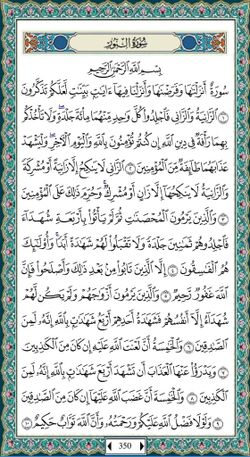 سُورَةُ النُّورِ
بِسْمِ اللَّهِ الرَّحْمَٰنِ الرَّحِيمِ
سُورَةٌ أَنزَلْنَٰهَا وَفَرَضْنَٰهَا وَأَنزَلْنَا فِيهَآ ءَايَٰتٍۭ بَيِّنَٰتٍ لَّعَلَّكُمْ تَذَكَّرُونَ
١ الزَّانِيَةُ وَالزَّانِي فَاجْلِدُوا۟ كُلَّ وَٰحِدٍ مِّنْهُمَا مِا۟ئَةَ جَلْدَةٍ وَلَا تَأْخُذْكُم
بِهِمَا رَأْفَةٌ فِي دِينِ اللَّهِ إِن كُنتُمْ تُؤْمِنُونَ بِاللَّهِ وَالْيَوْمِ الْءَاخِرِ وَلْيَشْهَدْ
عَذَابَهُمَا طَآئِفَةٌ مِّنَ الْمُؤْمِنِينَ ٢ الزَّانِي لَا يَنكِحُ إِلَّا زَانِيَةً أَوْ مُشْرِكَةً
وَالزَّانِيَةُ لَا يَنكِحُهَآ إِلَّا زَانٍ أَوْ مُشْرِكٌ وَحُرِّمَ ذَٰلِكَ عَلَى الْمُؤْمِنِينَ
٣ وَالَّذِينَ يَرْمُونَ الْمُحْصَنَٰتِ ثُمَّ لَمْ يَأْتُوا۟ بِأَرْبَعَةِ شُهَدَآءَ
فَاجْلِدُوهُمْ ثَمَٰنِينَ جَلْدَةً وَلَا تَقْبَلُوا۟ لَهُمْ شَهَٰدَةً أَبَدًا وَأُو۟لَٰٓئِكَ
هُمُ الْفَٰسِقُونَ ٤ إِلَّا الَّذِينَ تَابُوا۟ مِنۢ بَعْدِ ذَٰلِكَ وَأَصْلَحُوا۟ فَإِنَّ
اللَّهَ غَفُورٌ رَّحِيمٌ ٥ وَالَّذِينَ يَرْمُونَ أَزْوَٰجَهُمْ وَلَمْ يَكُن لَّهُمْ
شُهَدَآءُ إِلَّآ أَنفُسُهُمْ فَشَهَٰدَةُ أَحَدِهِمْ أَرْبَعُ شَهَٰدَٰتٍۭ بِاللَّهِ إِنَّهُۥ لَمِنَ
الصَّٰدِقِينَ ٦ وَالْخَٰمِسَةُ أَنَّ لَعْنَتَ اللَّهِ عَلَيْهِ إِن كَانَ مِنَ الْكَٰذِبِينَ
٧ وَيَدْرَؤُا۟ عَنْهَا الْعَذَابَ أَن تَشْهَدَ أَرْبَعَ شَهَٰدَٰتٍۭ بِاللَّهِ إِنَّهُۥ لَمِنَ
الْكَٰذِبِينَ ٨ وَالْخَٰمِسَةَ أَنَّ غَضَبَ اللَّهِ عَلَيْهَآ إِن كَانَ مِنَ الصَّٰدِقِينَ
٩ وَلَوْلَا فَضْلُ اللَّهِ عَلَيْكُمْ وَرَحْمَتُهُۥ وَأَنَّ اللَّهَ تَوَّابٌ حَكِيمٌ ١٠
350